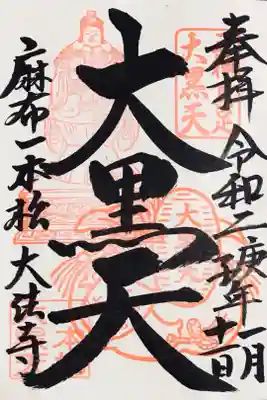 奉拝 令和二庚子年十一月一日
大黒天
麻布一本松 大法寺
大黒天